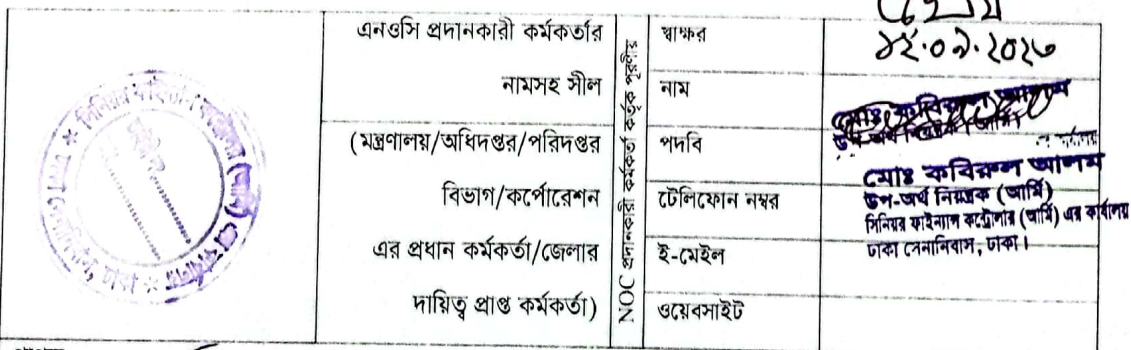 এনওসি প্রদানকারী কর্মকর্তার
নামসহ সীল
(মন্ত্রণালয়/অধিদপ্তর/পরিদপ্তর
বিভাগ/কর্পোরেশন
এর প্রধান কর্মকর্তা/জেলার
দায়িত্ব প্রাপ্ত কর্মকর্তা)
NOC প্রদানকারী কর্মকর্তা কর্তৃক পূরণীয়
স্বাক্ষর
নাম
পদবি
টেলিফোন নম্বর
ই-মেইল
ওয়েবসাইট
মোঃ কবিরুল আলম
উপ-অর্থ নিয়ন্ত্রক (আর্মি)
সিনিয়র ফাইন্যান্স কন্ট্রোলার (আর্মি) এর কার্যালয়
ঢাকা সেনানিবাস, ঢাকা।